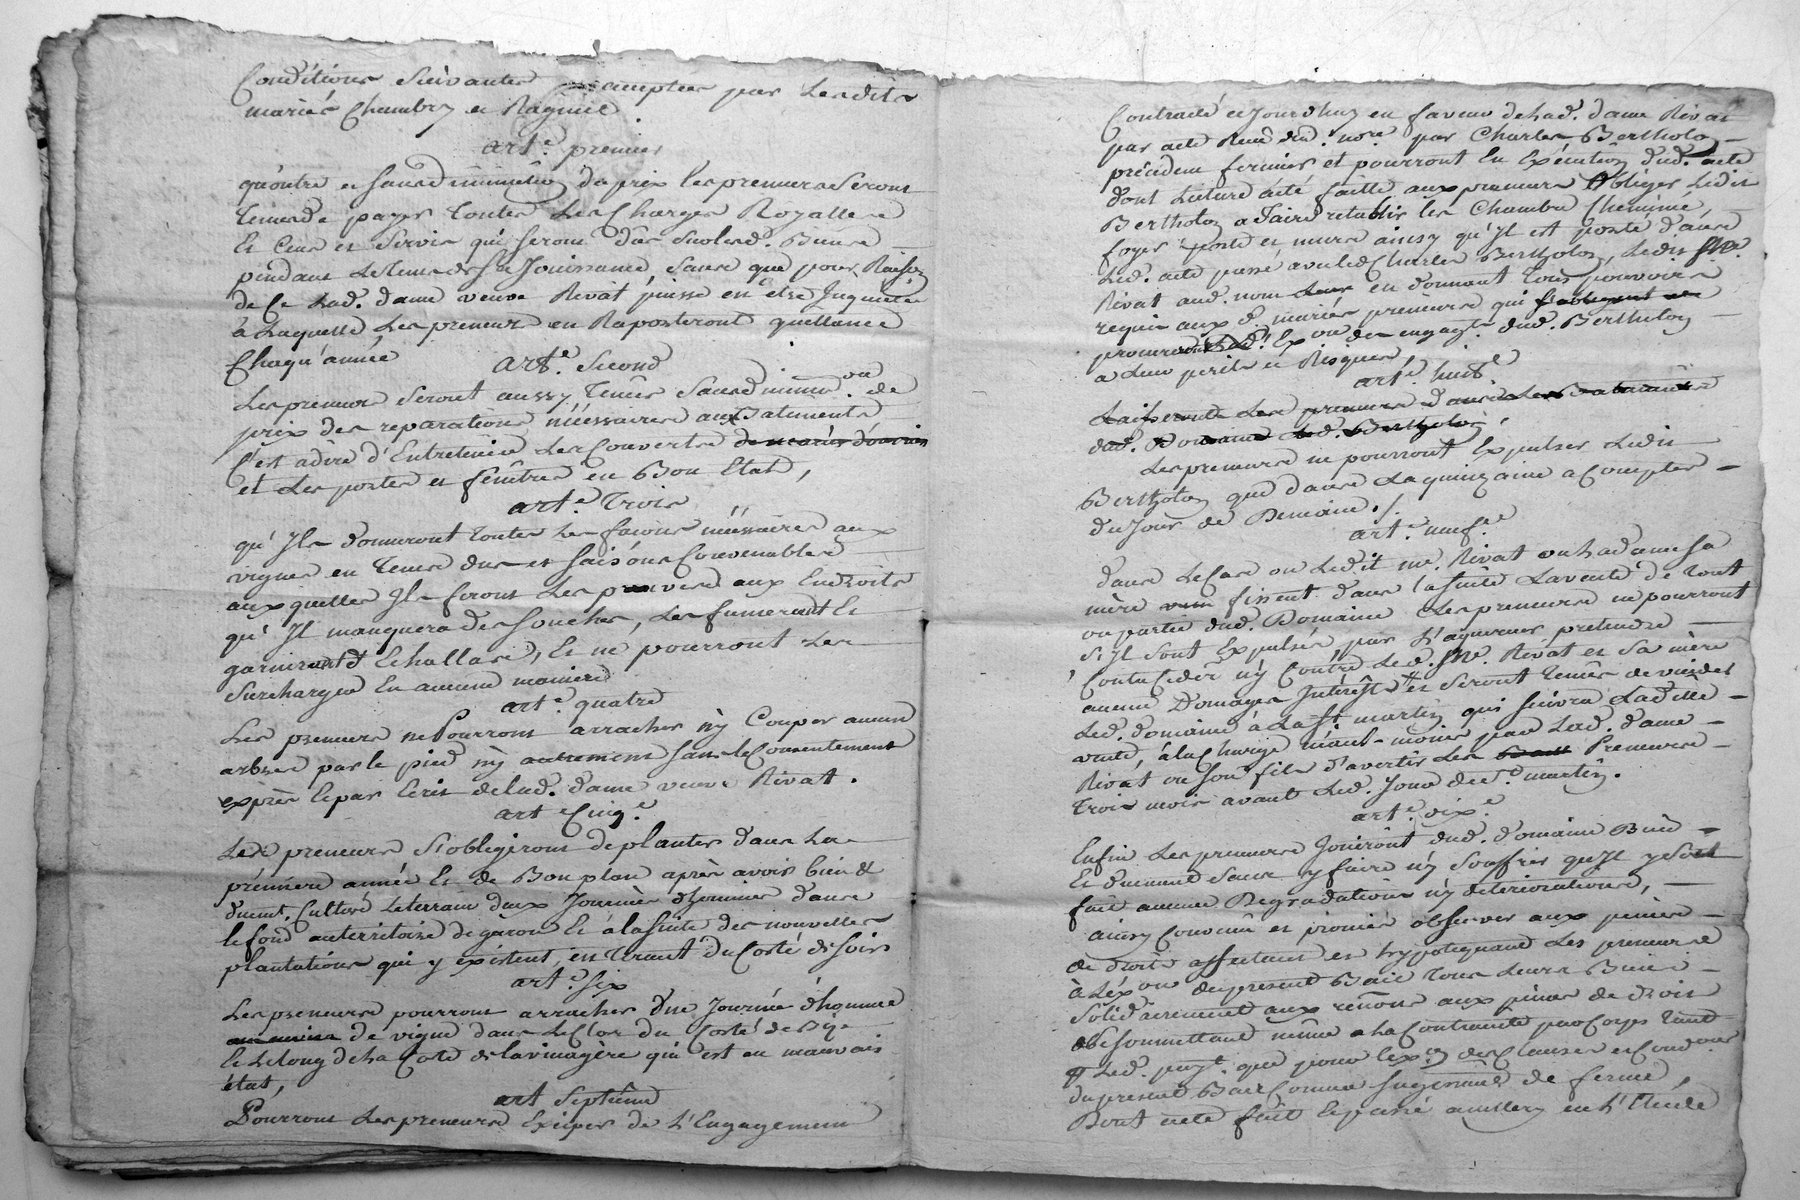 Conditions suivantes acceptées par lesdits
mariés Chambry et Raginel
arte. premier
qu'outre et sans diminution du prix les preneurs seront
tenus de payer toutes les Charges Royalles
Et Cens et Servis qui seront dûs sur lesd. Biens
pendant le tems de sa Jouissance, sans que pour Raison
de Ce lad. dame veuve Rivat puisse en être Inquiétée
à Laquelle Les preneurs en Raporteront quittance
Chaqu'année
arte. Second
Les preneurs seront aussy tenus sans diminuon. de
prix des reparations nécessaires aux Batiments
C'est adire d'Entretenir Les Couverts
et Les portes et fenêtres en Bon Etat,
arte. Trois
qu'Ils donneront toutes les façons nécessaires aux
vignes en tems dus et saisons Convenables
auxquelles Ils feront Les provins aux Endroits
qu'Il manquera de souches, Les fumeront Et
garniront d'Echallas, Et ne pourront Les
Surcharger En aucune maniere
arte. quatre
Les preneurs ne Pourront arracher n'y Couper aucun
arbres par le pied n'y autrement sans le Consentement
exprès Et par Ecrit de lad. dame veuve Rivat.
art Cinqe.
Les preneurs s'obligeront de planter dans La
première année Et de Bon plan après avoir bien &
duemt. Cultivé Le terrain deux Journées d'hommes dans
le fond au territoire de garon Et à la suite des nouvelles
plantations qui y existent, en tirant du Costé de Soir
arte. six
Les preneurs pourront arracher une Journée d'homme
de vigne dans Le Clos du Costé de Bize
Et Le long de La Cote de la vinagère qui est en mauvais
état,
art Septième
Pourront Les preneurs Exciper de L'Engagement
Contracté cejourd'huy en faveur de lad. dame Rivat
par acte Reçu dud. nore. par Charles Bertholon
précédent fermier et pourront En Exécution dud. acte
dont Lecture a été faitte aux preneurs Obliger Ledit
Bertholon a faire retablir les Chambre Cheminée,
foyer, porte et murs ainsy qu'Il est porté dans
Led. acte passé avec led Charles Bertholon, Ledit Sr.
Rivat aud. nom en donnant tous pouvoirs
requis aux d. mariés preneurs qui
procureront Lad. Exon des engagts. dud. Bertholon
a Leur perils et Risques,
arte. huite
Laisseront Les preneurs dans Les Batiments
dud. Domaine Led. Bertholon,
Les preneurs ne pourront Expulser Ledit
Bertholon que dans La quinzaine a Compter
du Jour de Demain./.
arte. neufe.
dans Le Cas ou Ledit me. Rivat ou la dame sa
mère fissent dans la suite La vente de tout
ou partie dud. Domaine Les preneurs ne pourront
s'Il sont Expulsés par l'aquereur pretendre
Contre Led. Sr. Rivat et sa mère
aucuns Domages Intérêsts et seront tenus de vuider
Led. domaine à La St. martin qui suivra Ladite
vente, à la Charge néant-moins par Lad. dame
Rivat ou son fils d'avertir Les Preneurs
trois mois avant Led. Jour de St. martin.
arte. dixe.
Enfin Les preneurs Jouiront dud. domaine Bien
Et duement sans y faire n'y souffrir qu'Il y soit
fait aucunes Degradations n'y déteriorations,
ainsy Convenu et promis observer aux peines
de droit affectant et hypotequant Les preneurs
à L'Exon du present Bail tous Leurs Biens
Solidairement aux renons. aux peines de droit
se soummettant même a La Contrainte par Corps tant
Led. payt. que pour l'Exon des Clauses et Condons
du present Bail Comme Sagissant de ferme
Dont acte fait Et passé a millery en L'Etude